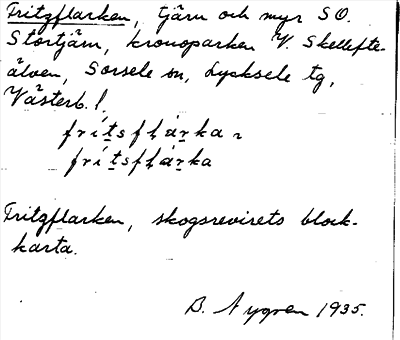 Fritzflarken, tjärn och myr SO.
Stortjärn, kronoparken V. Skellefte-
älven, Sorsele sn, Lycksele tg,
Västerb. l.
frítsflárka
frítsflárka
Fritzflarken, skogsrevirets block-
karta.
B. Nygren 1935.